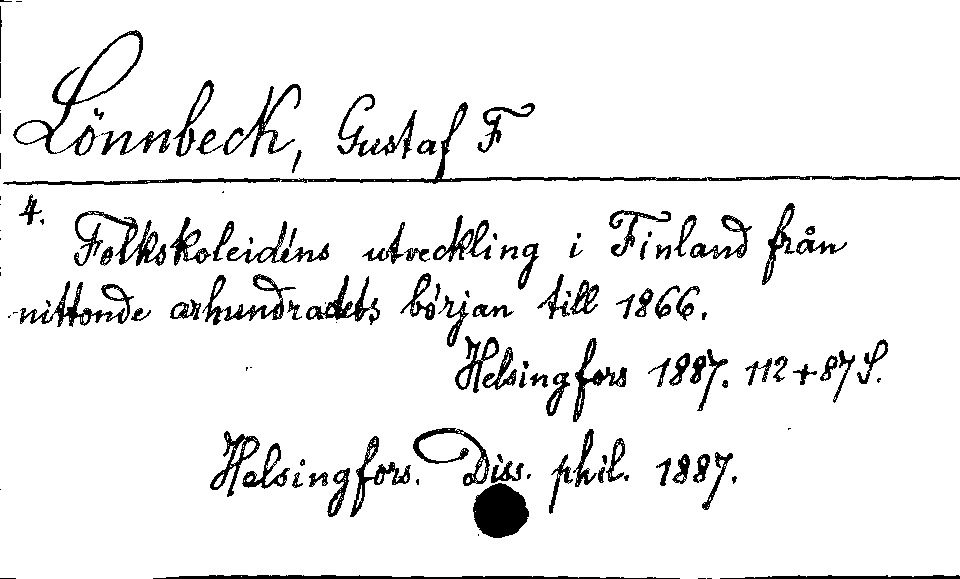 Lönnbeck, Gustaf F
4.
Folkskoleidéns utveckling i Finland från
nittonde arhundradets början till 1866.
Helsingfors 1887. 112+87 S.
Helsingfors. Diss. phil. 1887.